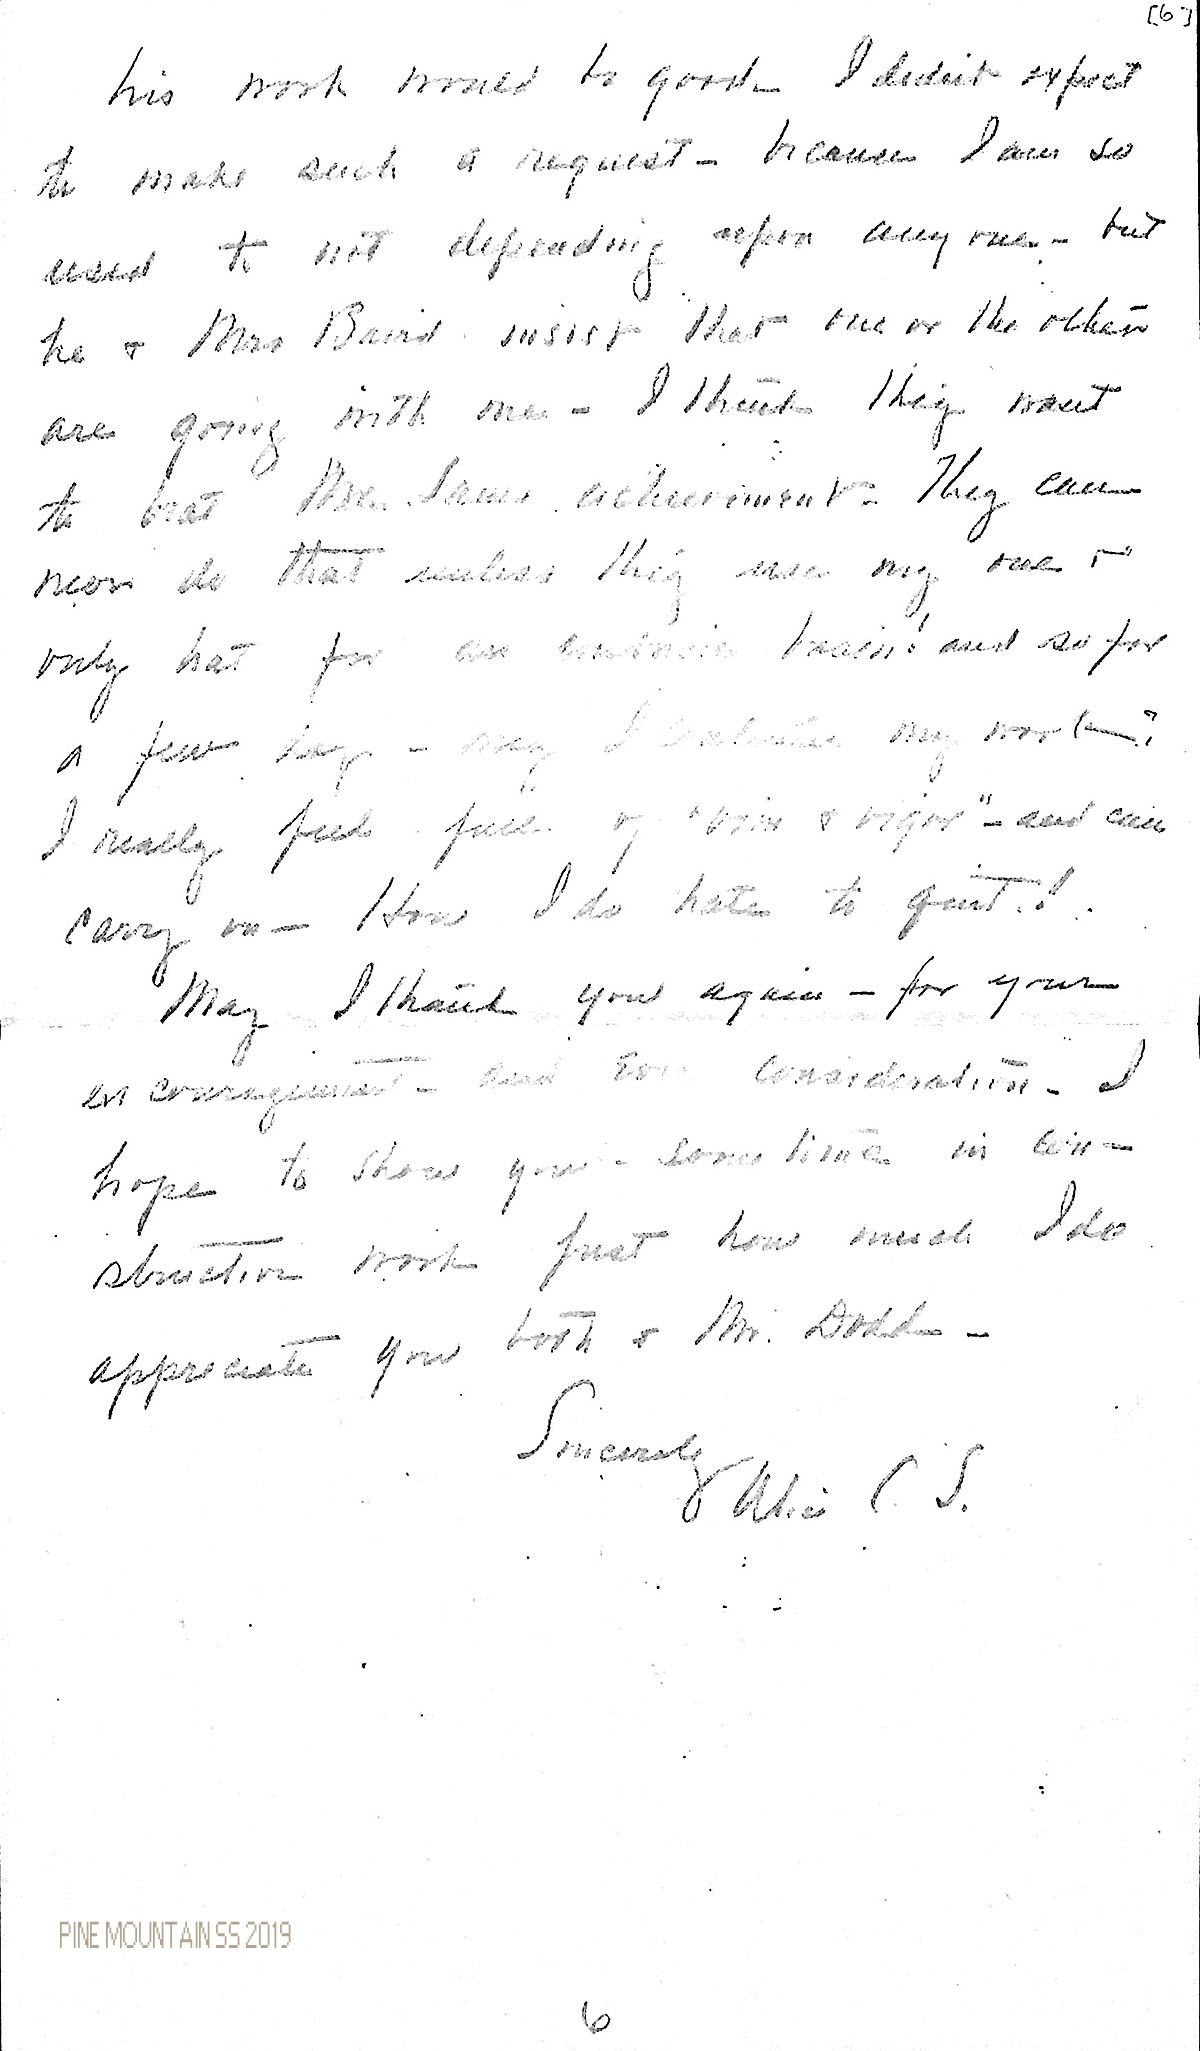 [6]
his work would be good – I didn't expect
to make such a request – because I am so
used to not depending upon any one – but
he & Mrs Baird insist that one or the other
are going with me – I think they want
to beat achievement – They can
never do that unless they use my one &
only hat for an brain! and so for
a few days – may I my work –?
I really feel full of "vim & vigor" – and can
carry on – How I do hate to quit!
May I thank you again – for your
encouragement – and consideration – I
hope to show you – sometime in con-
struction work just how much I do
appreciate you both & Mr. Dodd –
Sincerely
Alice C. S.
PINE MOUNTAIN SS 2019
6